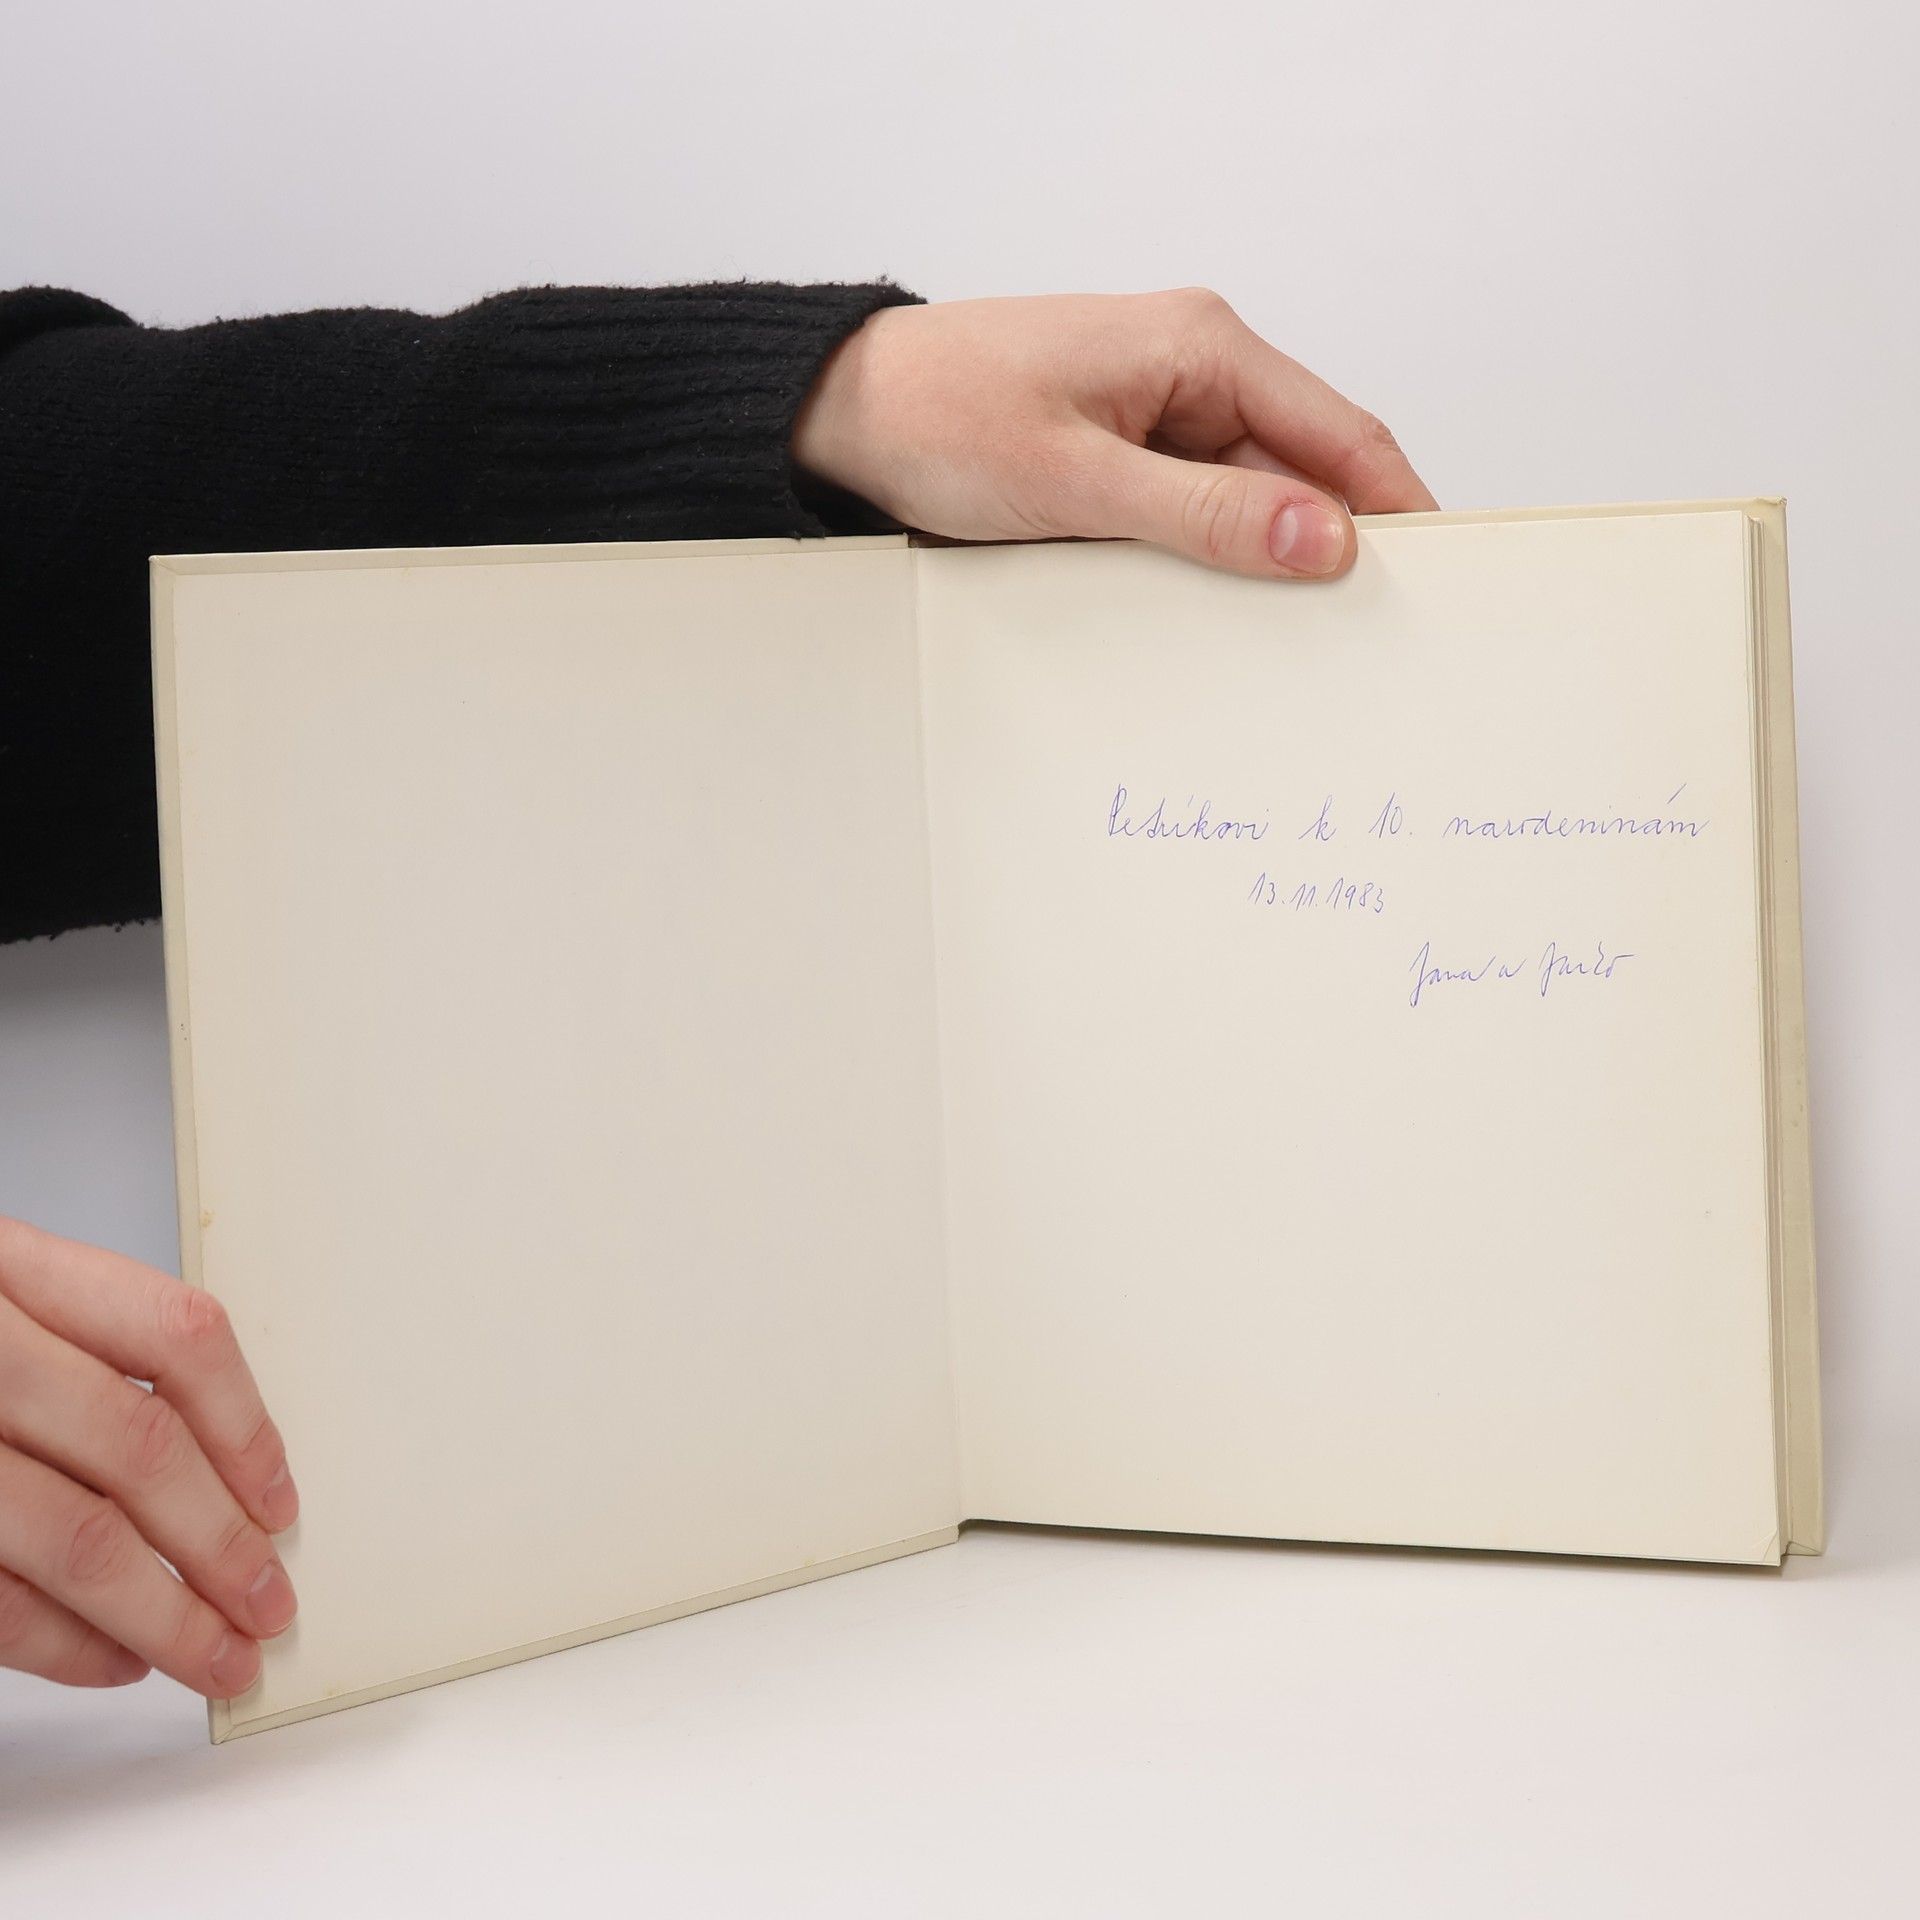 Petríkovi k 10. narodeninám
13.11.1983
Jana a Jarko